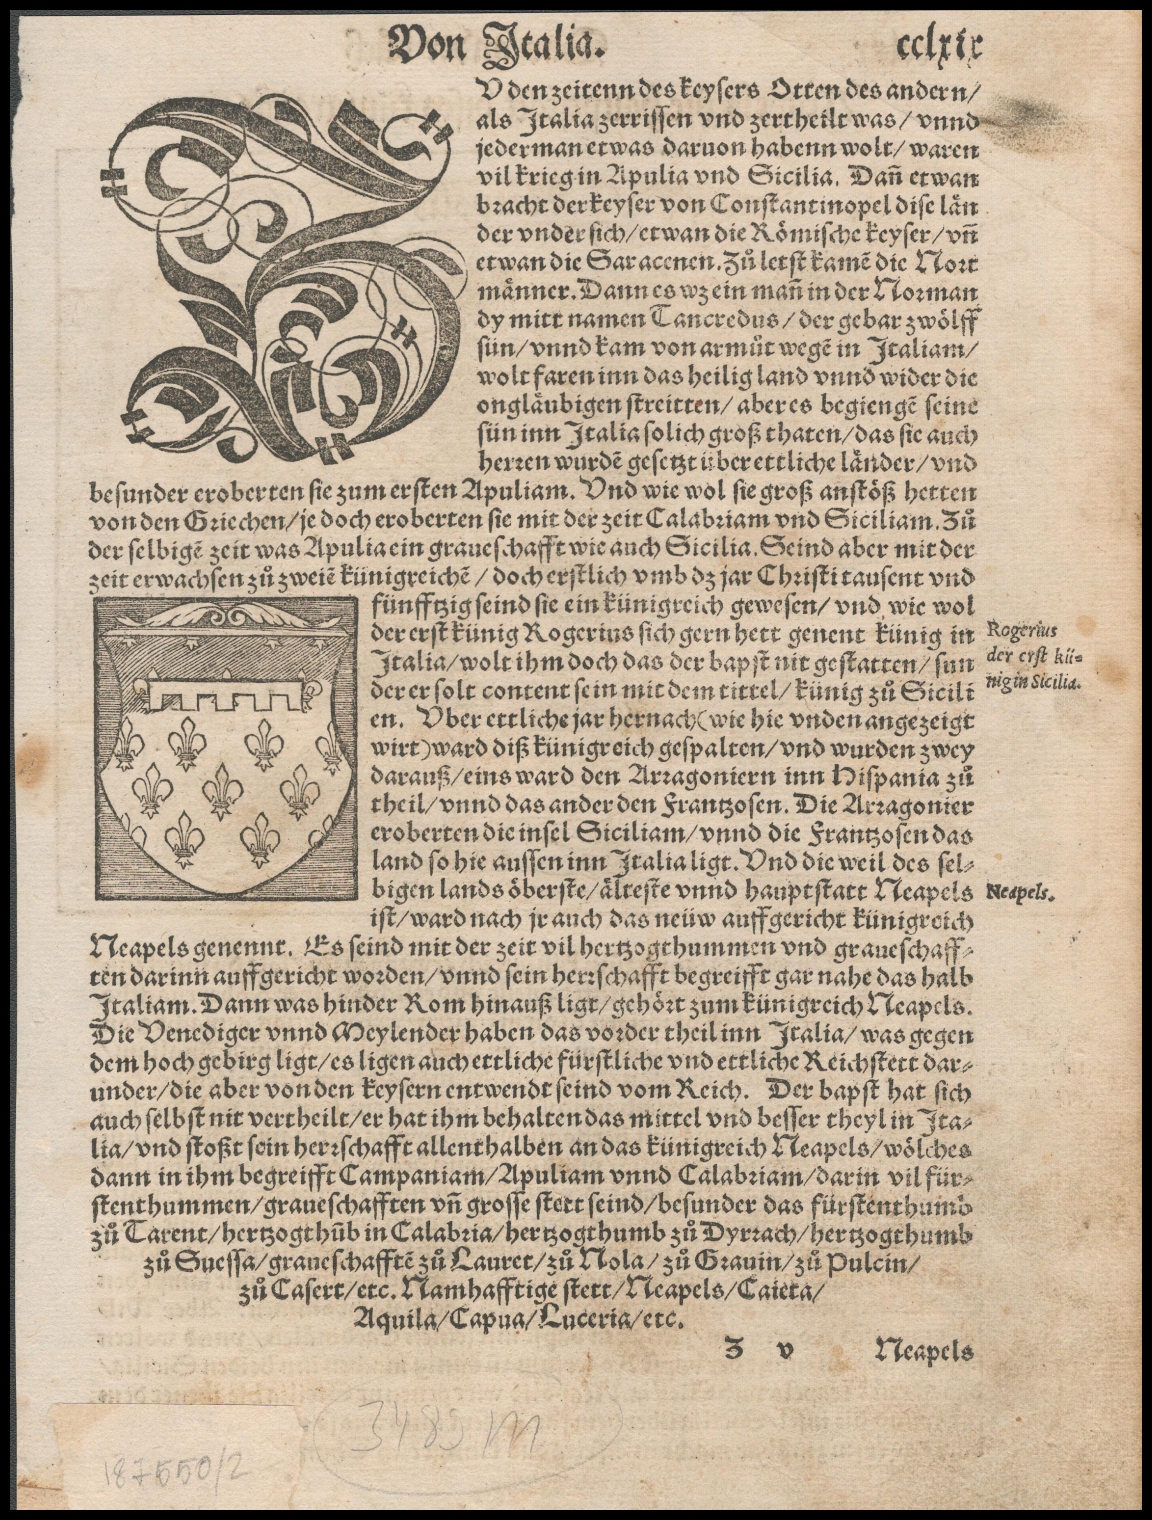 Von Italia. cclxix
ZV den zeitenn des keysers Otten des andern/
als Italia zerrissen vnd zertheilt was/ vnnd
jederman etwas daruon habenn wolt/ waren
vil krieg in Apulia vnd Sicilia. Dañ etwan
bracht der keyser von Constantinopel dise län
der vnder sich/etwan die Römische keyser/vñ
etwan die Saracenen. Zů letst kamẽ die Nort
männer. Dann es wz ein mañ in der Norman
dy mitt namen Tancredus/der gebar zwölff
sün/vnnd kam von armůt wegẽ in Italiam/
wolt faren inn das heilig land vnnd wider die
ongläubigen streitten/ aber es begiengẽ seine
sün inn Italia solich groß thaten/das sie auch
herren wurdẽ gesetzt über ettliche länder/vnd
besunder eroberten sie zum ersten Apuliam. Vnd wie wol sie groß anstöß hetten
von den Griechen/je doch eroberten sie mit der zeit Calabriam vnd Siciliam. Zů
der selbigẽ zeit was Apulia ein graueschafft wie auch Sicilia. Seind aber mit der
zeit erwachsen zů zweiẽ künigreichẽ/doch erstlich vmb dz jar Christi tausent vnd
fünfftzig seind sie ein künigreich gewesen/ vnd wie wol
der erst künig Rogerius sich gern hett genent künig in
Italia/wolt ihm doch das der bapst nit gestatten/sun
der er solt content sein mit dem tittel/künig zů Sicili
en. Vber ettliche jar hernach (wie hie vnden angezeigt
wirt) ward diß künigreich gespalten/vnd wurden zwey
darauß/eins ward den Arragoniern inn Hispania zů
theil/vnnd das ander den Frantzosen. Die Arragonier
eroberten die insel Siciliam/vnnd die Frantzosen das
land so hie aussen inn Italia ligt. Vnd die weil des sel-
bigen lands öberste/älteste vnnd hauptstatt Neapels
ist/ward nach jr auch das neüw auffgericht künigreich
Rogerius
der erst kü-
nig in Sicilia.
Neapels.
Neapels genennt. Es seind mit der zeit vil hertzogthummen vnd graueschaff-
ten darinn auffgericht worden/vnnd sein herrschafft begreifft gar nahe das halb
Italiam. Dann was hinder Rom hinauß ligt/gehört zum künigreich Neapels.
Die Venediger vnnd Meylender haben das vorder theil inn Italia/was gegen
dem hoch gebirg ligt/es ligen auch ettliche fürstliche vnd ettliche Reichstett dar-
under/die aber von den keysern entwendt seind vom Reich. Der bapst hat sich
auch selbst nit vertheilt/er hat ihm behalten das mittel vnd besser theyl in Ita-
lia/vnd stoßt sein herrschafft allenthalben an das künigreich Neapels/wölches
dann in ihm begreifft Campaniam/Apuliam vnnd Calabriam/darin vil für-
stenthummen/graueschafften vñ grosse stett seind/besunder das fürstenthumb
zů Tarent/hertzogthũb in Calabria/hertzogthumb zů Dyrrach/hertzogthumb
zů Suessa/graueschafftẽ zů Lauret/zů Nola/zů Grauin/zů Pulcin/
zů Casert/etc. Namhafftige stett/Neapels/Caieta/
Aquila/Capua/Luceria/etc.
Z v Neapels
3483 M
187550/2